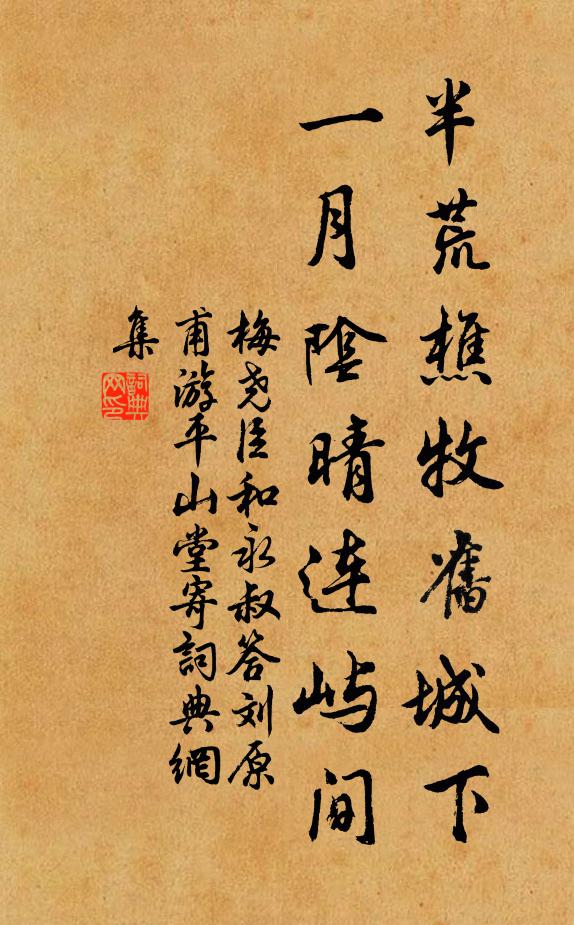 半荒樵牧舊城下
一月陰晴连屿间
梅尧臣和永叔答刘原
甫游平山堂寄詞典網
集
詞典
网印